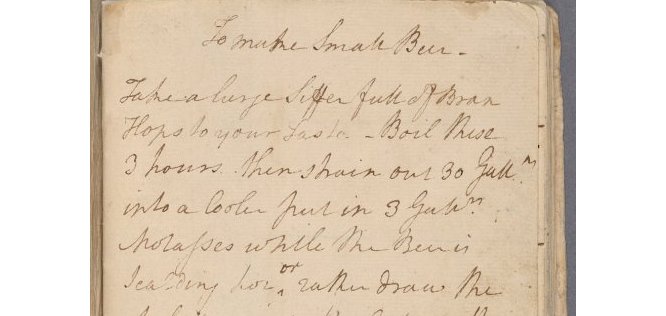 To make Small Beer -
Take a large Siffer full of Bran
Hops to your Taste - Boil these
3 hours. then strain out 30 Gall.n
into a Cooler put in 3 Gall.n
Molasses while the Beer is
Scalding hot or rather draw the